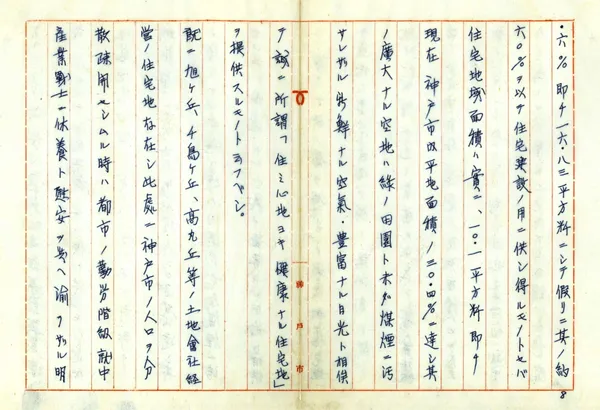 ・六％即チ一六・八三平方粁ニシテ假リニ其ノ約
六〇％ヲ以テ住宅建設ノ用ニ供シ得ルモノトセバ
住宅地域面積ハ實ニ、一〇・一平方粁即チ
現在神戸市以平地面積ノ三〇・四％ニ達シ其
ノ廣大ナル空地ハ緑ノ田園ト未ダ煤煙ニ汚
サレザル新鮮ナル空氣・豊富ナル日光ト相俟
チ誠ニ所謂「住ミ心地ヨキ健康ナル住宅地」
ヲ提供スルモノト云フベシ。
神戸市
既ニ旭ヶ丘、千鳥ヶ丘、高丸丘等ノ土地會社経
営ノ住宅地存在シ此處ニ神戸市ノ人口ヲ分
散疎開セシムル時ハ都市ノ勤労階級就中
産業戰士ニ休養ト慰安ヲ與ヘ渝ラザル明
8